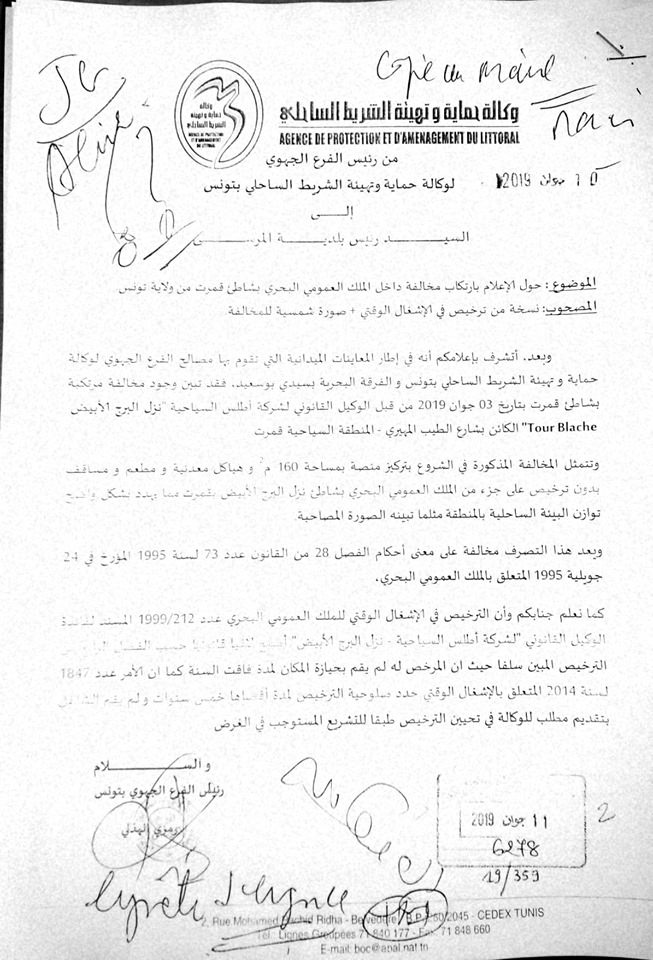 Copie au Maire
وكالة حماية و تهيئة الشريط الساحلي
AGENCE DE PROTECTION ET D'AMENAGEMENT DU LITTORAL
وكالة
حماية و تهيئة
الشريط الساحلي
AGENCE DE PROTECTION
ET D'AMENAGEMENT
DU LITTORAL
من رئيس الفرع الجهوي
لوكالة حماية وتهيئة الشريط الساحلي بتونس
10 جوان 2019
إلــــى
السيــــــد رئيس بلديــــة المرســــى
الموضوع: حول الإعلام بارتكاب مخالفة داخل الملك العمومي البحري بشاطئ قمرت من ولاية تونس.
المصحوب: نسخة من ترخيص في الإشغال الوقتي + صورة شمسية للمخالفة.
وبعد، أتشرف بإعلامكم أنه في إطار المعاينات الميدانية التي تقوم بها مصالح الفرع الجهوي لوكالة
حماية و تهيئة الشريط الساحلي بتونس و الفرقة البحرية بسيدي بوسعيد، فقد تبين وجود مخالفة مرتكبة
بشاطئ قمرت بتاريخ 03 جوان 2019 من قبل الوكيل القانوني لشركة أطلس السياحية "نزل البرج الأبيض
Tour Blache" الكائن بشارع الطيب المهيري - المنطقة السياحية قمرت
وتتمثل المخالفة المذكورة في الشروع بتركيز منصة بمساحة 160 م2 و هياكل معدنية و مطعم و مساقف
بدون ترخيص على جزء من الملك العمومي البحري بشاطئ نزل البرج الأبيض بقمرت مما يهدد بشكل واضح
توازن البيئة الساحلية بالمنطقة مثلما تبينه الصورة المصاحبة.
ويعد هذا التصرف مخالفة على معنى أحكام الفصل 28 من القانون عدد 73 لسنة 1995 المؤرخ في 24
جويلية 1995 المتعلق بالملك العمومي البحري.
كما نعلم جنابكم وأن الترخيص في الإشغال الوقتي للملك العمومي البحري عدد 1999/212 المسند لفائدة
الوكيل القانوني "لشركة أطلس السياحية - نزل البرج الأبيض" أصبح لاغيا قانونيا حسب الفصل
الترخيص المبين سلفا حيث ان المرخص له لم يقم بحيازة المكان لمدة فاقت السنة كما ان الأمر عدد 1847
لسنة 2014 المتعلق بالإشغال الوقتي حدد صلوحية الترخيص لمدة أقصاها خمس سنوات و لم يقم
بتقديم مطلب للوكالة في تحيين الترخيص طبقا للتشريع المستوجب في الغرض
و الســــــــلام
رئيس الفرع الجهوي بتونس
الهذلي
11 جوان 2019
6278
19/359
2
2, Rue Mohamed Rachid Ridha - Belvédère B.P. 60/2045 - CEDEX TUNIS
Tel.: Lignes Groupées 71 840 177 - Fax: 71 848 660
E-mail: boc@apal.nat.tn